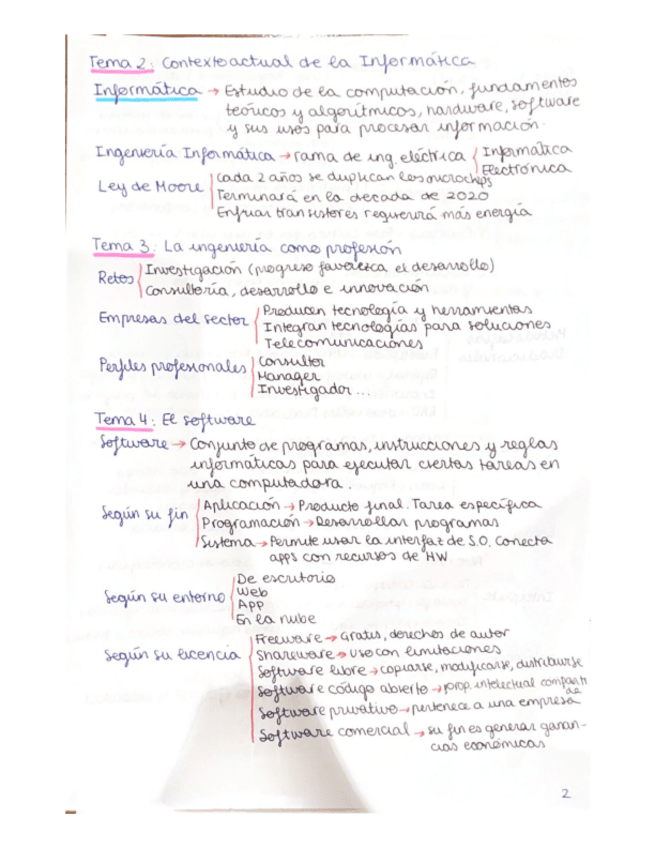 Tema 2: Contexto actual de la Informática
Informática → Estudio de la computación, fundamentos
teóricos y algorítmicos, hardware, software
y sus usos para procesar información.
Ingeniería Informática → rama de ing. eléctrica { Informática
Electrónica
Ley de Moore { cada 2 años se duplican los microchips
Terminará en la decada de 2020
Enfriar transistores requerirá más energía
Tema 3: La ingeniería como profesión
Retos { Investigación (progreso favorezca el desarrollo)
Consultoría, desarrollo e innovación
Empresas del sector { Producen tecnología y herramientas
Integran tecnologías para soluciones
Telecomunicaciones
Perfiles profesionales { Consultor
Manager
Investigador...
Tema 4: El software
Software → Conjunto de programas, instrucciones y reglas
informáticas para ejecutar ciertas tareas en
una computadora.
Según su fin { Aplicación → Producto final. Tarea específica
Programación → Desarrollar programas
Sistema → Permite usar la interfaz de S.O. Conecta
apps con recursos de HW
Según su entorno { De escritorio
Web
APP
En la nube
Según su licencia { Freeware → Gratis, derechos de autor
Shareware → uso con limitaciones
Software libre → copiarse, modificarse, distribuirse
Software código abierto → prop. intelectual comparti
da
Software privativo → pertenece a una empresa
Software comercial → su fin es generar ganan-
cias económicas
2